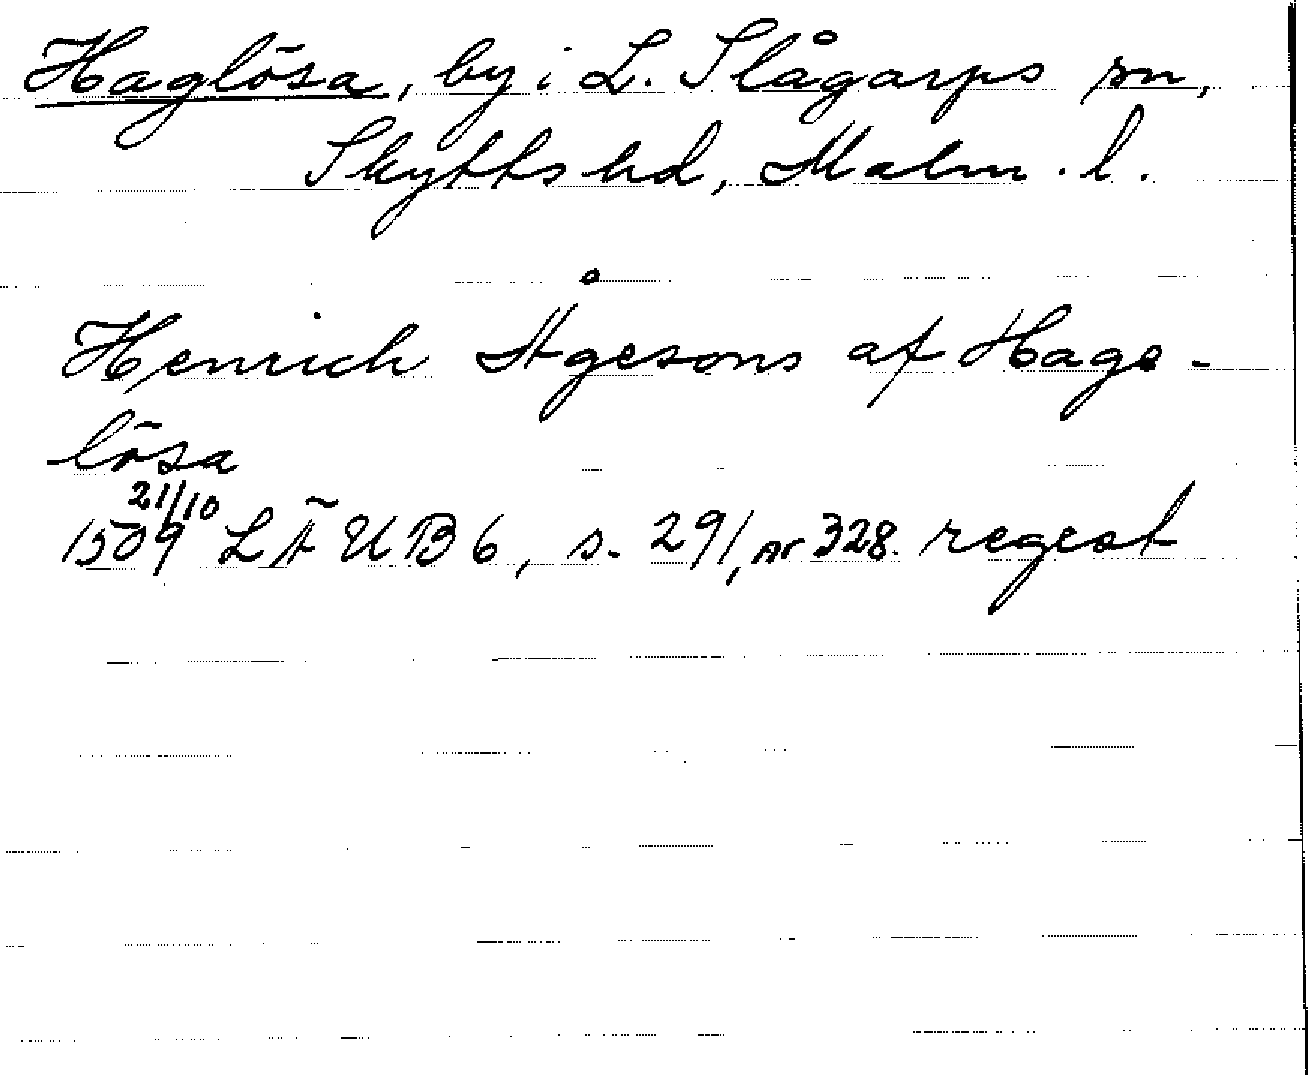 Haglösa, by i L. Slågarps sn,
Skytts hd, Malm. l.
Henrich Ågesons af Hage-
lösa
1509 21/10 LÄUB 6, s. 291, nr 328. regest